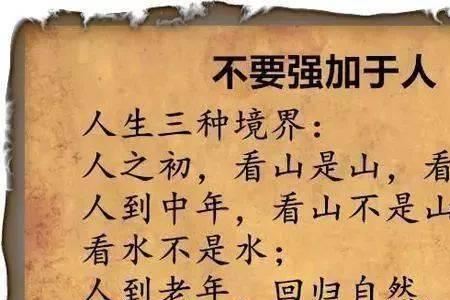 不要强加于人
人生三种境界：
人之初，看山是山，看
人到中年，看山不是山
看水不是水；
人到老年，回归自然